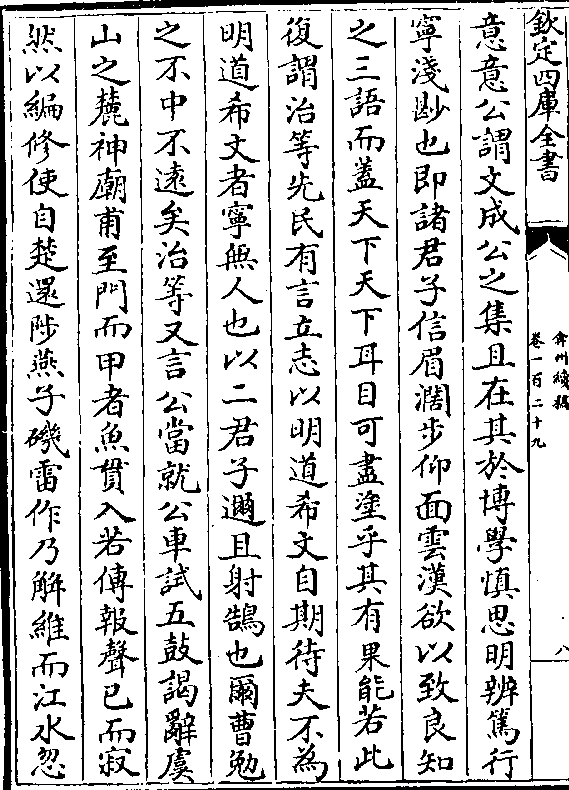 欽定四庫全書
弇州續稿
卷一百二十九
八
意意公謂文成公之集且在其於博學慎思明辨篤行
寧淺尠也即諸君子信眉濶步仰面雲漢欲以致良知
之三語而蓋天下天下耳目可盡塗乎其有果能若此
復謂治等先民有言立志以明道希文自期待夫不為
明道希文者寧無人也以二君子邇且射鵠也爾曹勉
之不中不遠矣治等又言公當就公車試五鼓謁辭虞
山之麓神廟甫至門而甲者魚貫入若傳報聲已而寂
然以編修使自楚還陟燕子磯雷作乃解維而江水忽